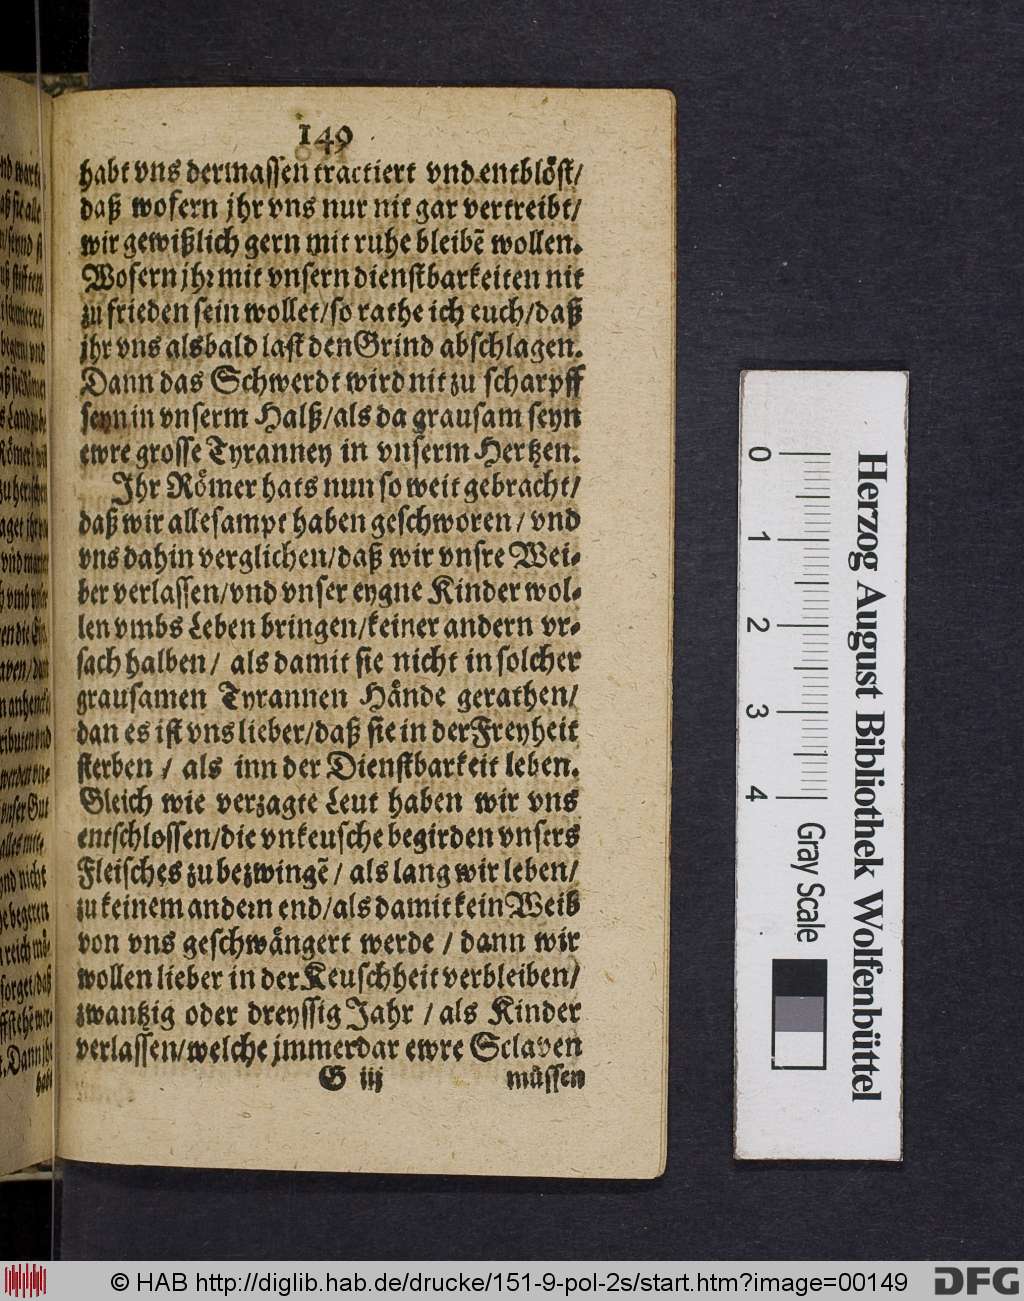 149
habt vns dermassen tractiert vnd entblöst/
daß wofern jhr vns nur nit gar vertreibt/
wir gewißlich gern mit ruhe bleibẽ wollen.
Wofern jhr mit vnsern dienstbarkeiten nit
zu frieden sein wollet/so rathe ich euch/daß
jhr vns alsbald last den Grind abschlagen.
Dann das Schwerdt wird nit zu scharpff
seyn in vnserm Halß/als da grausam seyn
ewre grosse Tyranney in vnserm Hertzen.
Ihr Römer hats nun so weit gebracht/
daß wir allesampt haben geschworen/vnd
vns dahin verglichen/daß wir vnsre Wei-
ber verlassen/vnd vnser eygne Kinder wol-
len vmbs Leben bringen/keiner andern vr-
sach halben/ als damit sie nicht in solcher
grausamen Tyrannen Hände gerathen/
dan es ist vns lieber/daß sie in der Freyheit
sterben / als inn der Dienstbarkeit leben.
Gleich wie verzagte Leut haben wir vns
entschlossen/die vnkeusche begirden vnsers
Fleisches zu bezwingẽ/ als lang wir leben/
zu keinem andern end/als damit kein Weib
von vns geschwängert werde / dann wir
wollen lieber in der Keuschheit verbleiben/
zwantzig oder dreyssig Jahr / als Kinder
verlassen/welche jmmerdar ewre Sclaven
G iij müssen
0 1 2 3 4
Gray Scale
Herzog August Bibliothek Wolfenbüttel
© HAB http://diglib.hab.de/drucke/151-9-pol-2s/start.htm?image=00149
DFG